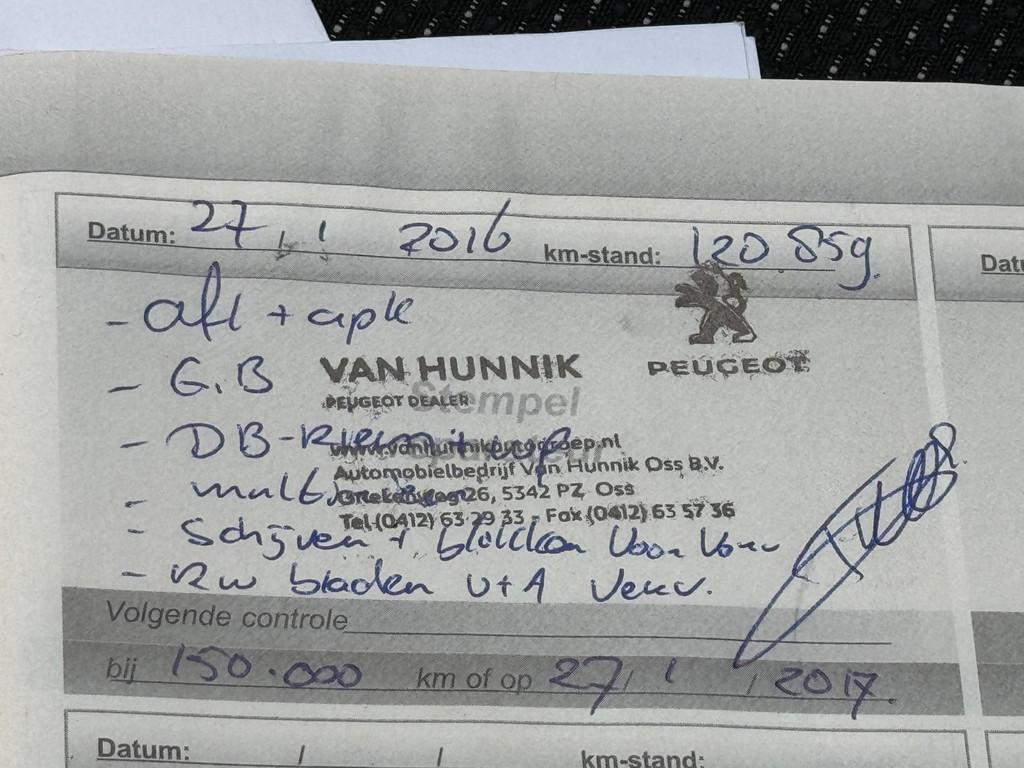 Datum: 27 / 1 / 2016 km-stand: 120 859
- afl + apk
PEUGEOT
- G.B
VAN HUNNIK
PEUGEOT DEALER
Stempel
- DB-Riem
www.vanhunnikautogroep.nl
Automobielbedrijf Van Hunnik Oss B.V.
- multiriem
Griekenweg 26, 5342 PZ Oss
Tel (0412) 63 29 33 - Fax (0412) 63 57 36
- Schijven + blokken Voor Verv
- RW bladen V+A Verv.
Volgende controle
bij 150.000 km of op 27 / 1 / 2017.
Datum: / / km-stand:
Dat